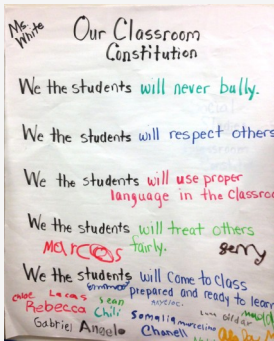 Ms. White
Our Classroom
Constitution
We the students will never bully.
We the students will respect others
We the students will use proper
language in the Classroo
We the students will treat others
fairly.
Marcos
Gerry
We the students will come to class
prepared and ready to learn
Chloe Lucas Sean
Rebecca Chili Somalia marcelino
Gabriel Angelo Chanell